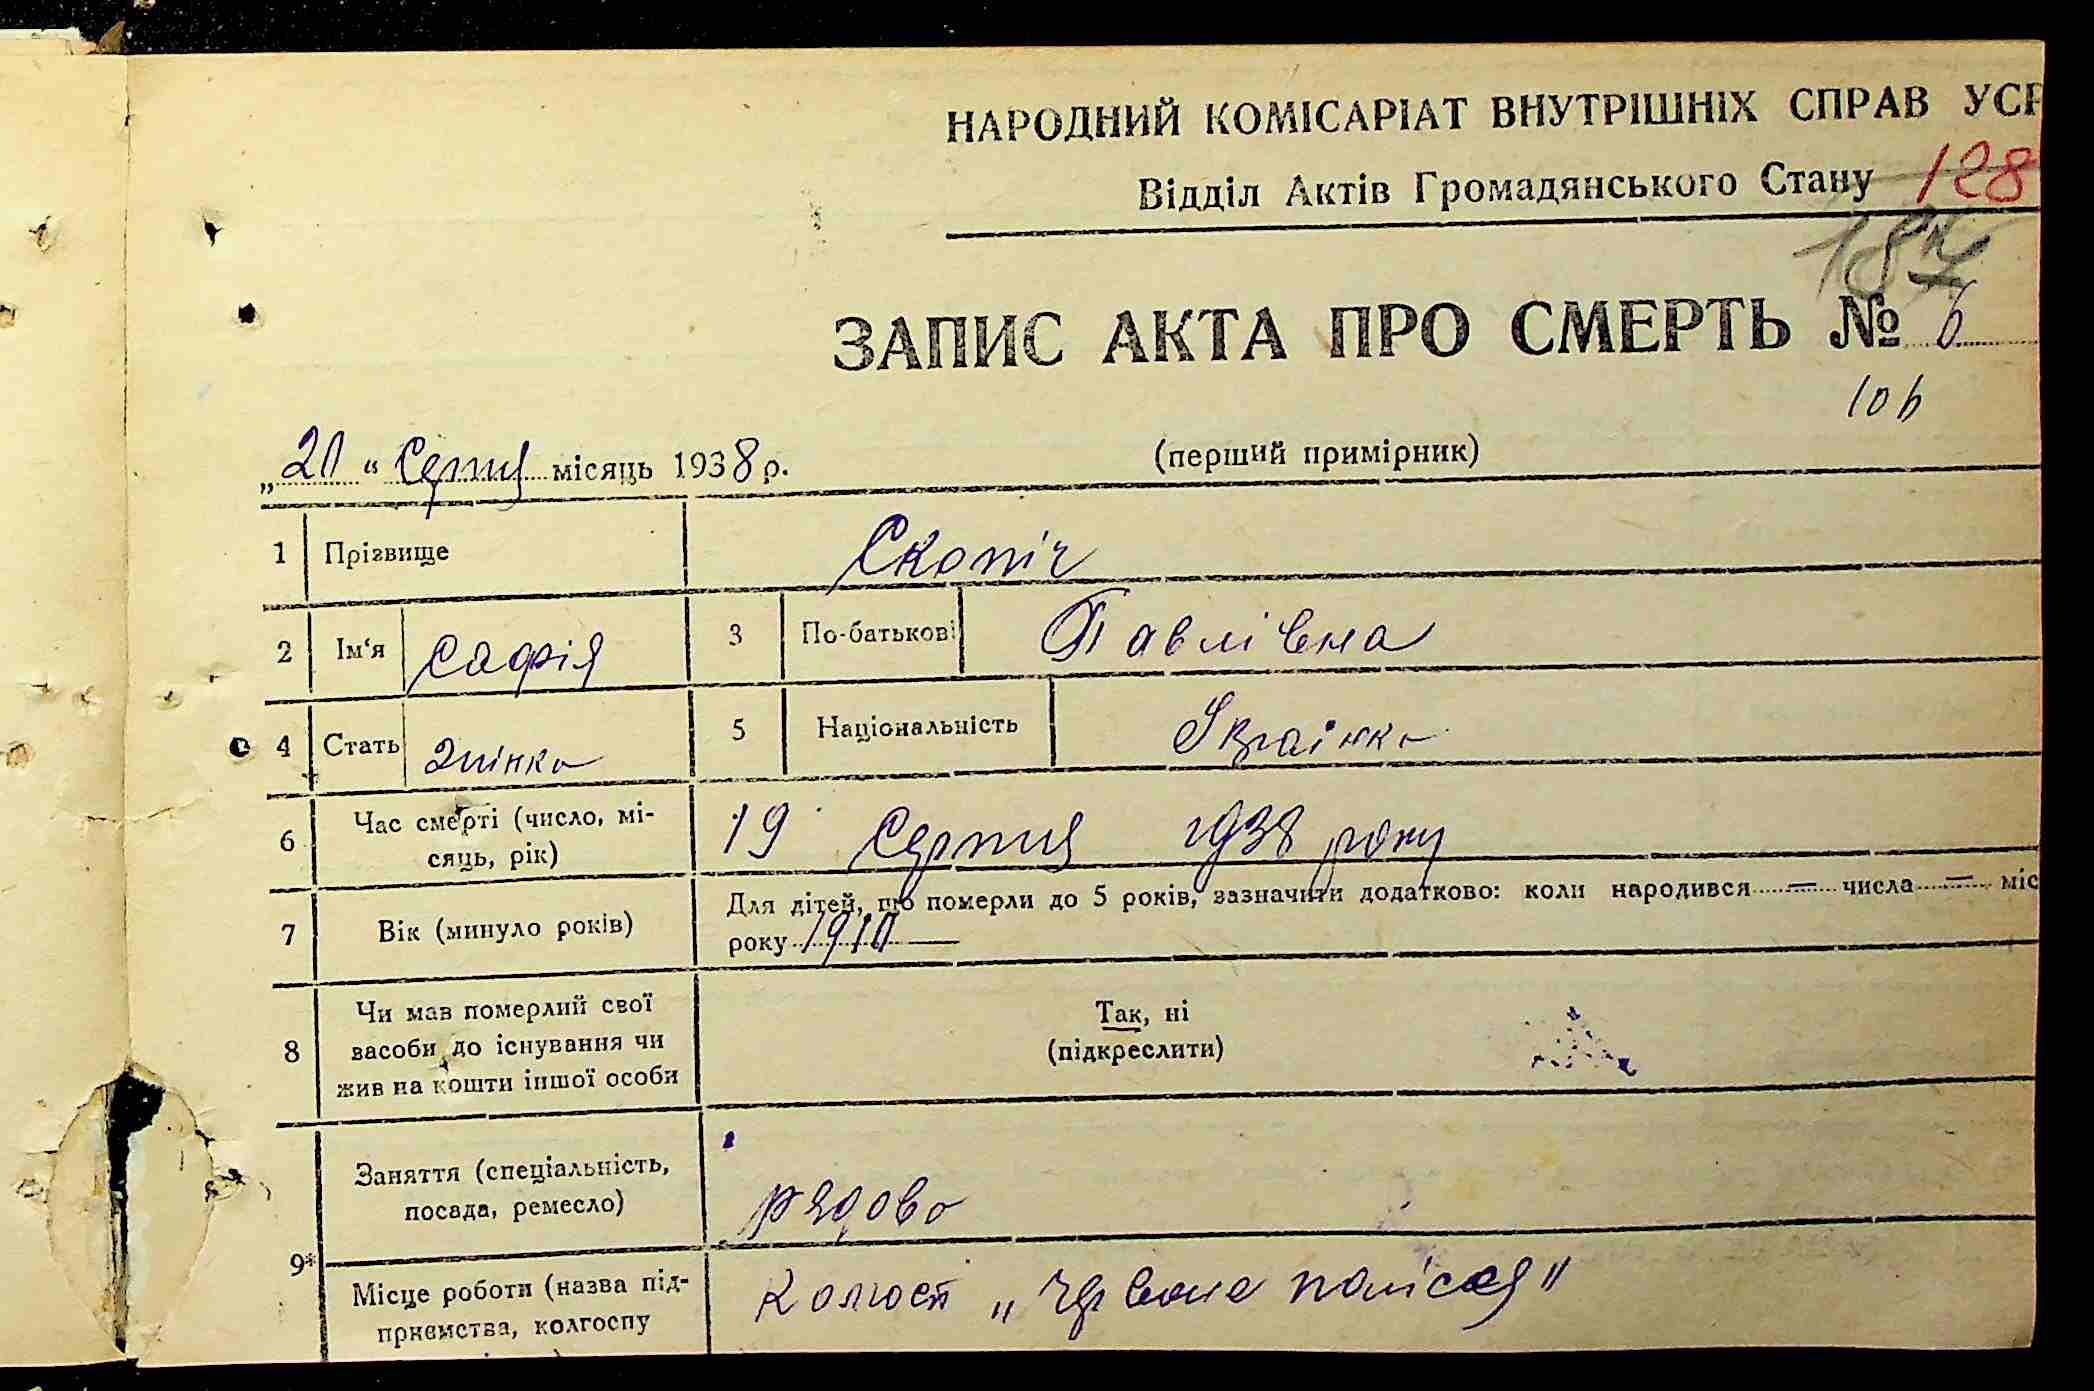 НАРОДНИЙ КОМІСАРІАТ ВНУТРІШНІХ СПРАВ УСР
Відділ Актів Громадянського Стану 128
187
ЗАПИС АКТА ПРО СМЕРТЬ № 6
106
„20“ Серпня місяць 1938 р. (перший примірник)
1 Прізвище Скопіч
2 Ім'я Софія 3 По-батькові Павлівна
4 Стать жінка 5 Національність Українка
6 Час смерті (число, мі-
сяць, рік) 19 Серпня 1938 року
7 Вік (минуло років) Для дітей, що померли до 5 років, зазначити додатково: коли народився — числа — міс
року 1910
8 Чи мав померлий свої
засоби до існування чи
жив на кошти іншої особи
Так, ні
(підкреслити)
9* Заняття (спеціальність,
посада, ремесло) рядова
Місце роботи (назва під-
приємства, колгоспу
Колгосп „Червоне полісся"